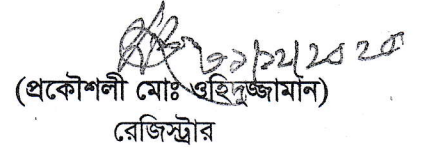 ৩১/১২/২০২০
(প্রকৌশলী মোঃ ওহিদুজ্জামান)
রেজিস্ট্রার